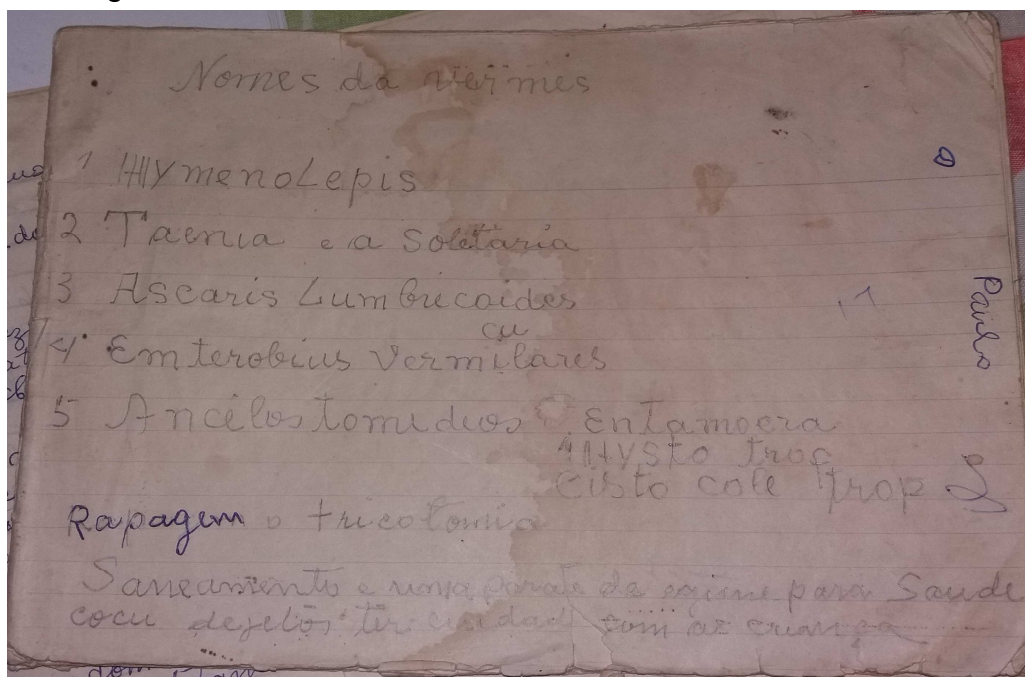 Nomes da vermes
1 HHymenoLepis
2 Taenia e a Soletaria
3 Ascaris Lumbricoides
cu
4 Emterobius Vermilares
5 Ancilostomideos Entamoera
Hysto trop
Cisto cole trop
Rapagem o tricotomia
Saneamento e uma de para Saude
cocu dejetos ter cuidad com as criança
Paulo